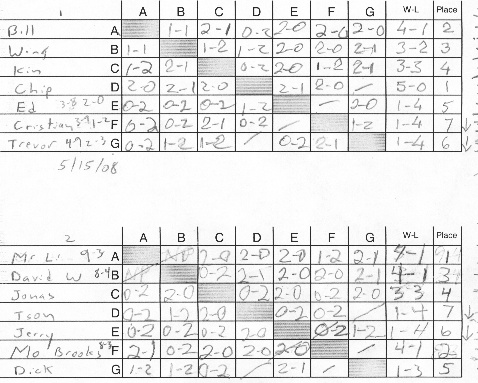 1 A B C D E F G W-L Place
Bill A 1-1 2-1 0-2 2-0 2-0 2-0 4-1 2
Wing B 1-1 1-2 1-2 2-0 2-0 2-1 3-2 3
Kin C 1-2 2-1 0-2 2-0 1-2 2-1 3-3 4
Chip D 2-0 2-1 2-0 2-1 2-0 / 5-0 1
Ed E 0-2 0-2 0-2 1-2 / 2-0 1-4 5
Cristian F 0-2 0-2 2-1 0-2 / 1-2 1-4 7 ↓
Trevor G 0-2 1-2 1-2 / 0-2 2-1 1-4 6 ↓
5/15/08
2 A B C D E F G W-L Place
Mr Li 93 A 2-0 2-0 2-0 1-2 2-1 4-1
David W 8-4 B 0-2 2-1 2-0 2-1 4-1 3
Jonas C 0-2 2-0 0-2 2-0 0-2 2-0 3-3 4
Tson D 0-2 1-2 2-0 0-2 0-2 / 1-4 7 ↓
Jerry E 0-2 0-2 0-2 2-0 0-2 1-2 1-4 6 ↓
Mo Brooks 8-3 F 2-1 0-2 2-0 2-0 2-0 / 4-1 2
Dick G 1-2 1-2 0-2 / 2-1 / 1-3 5